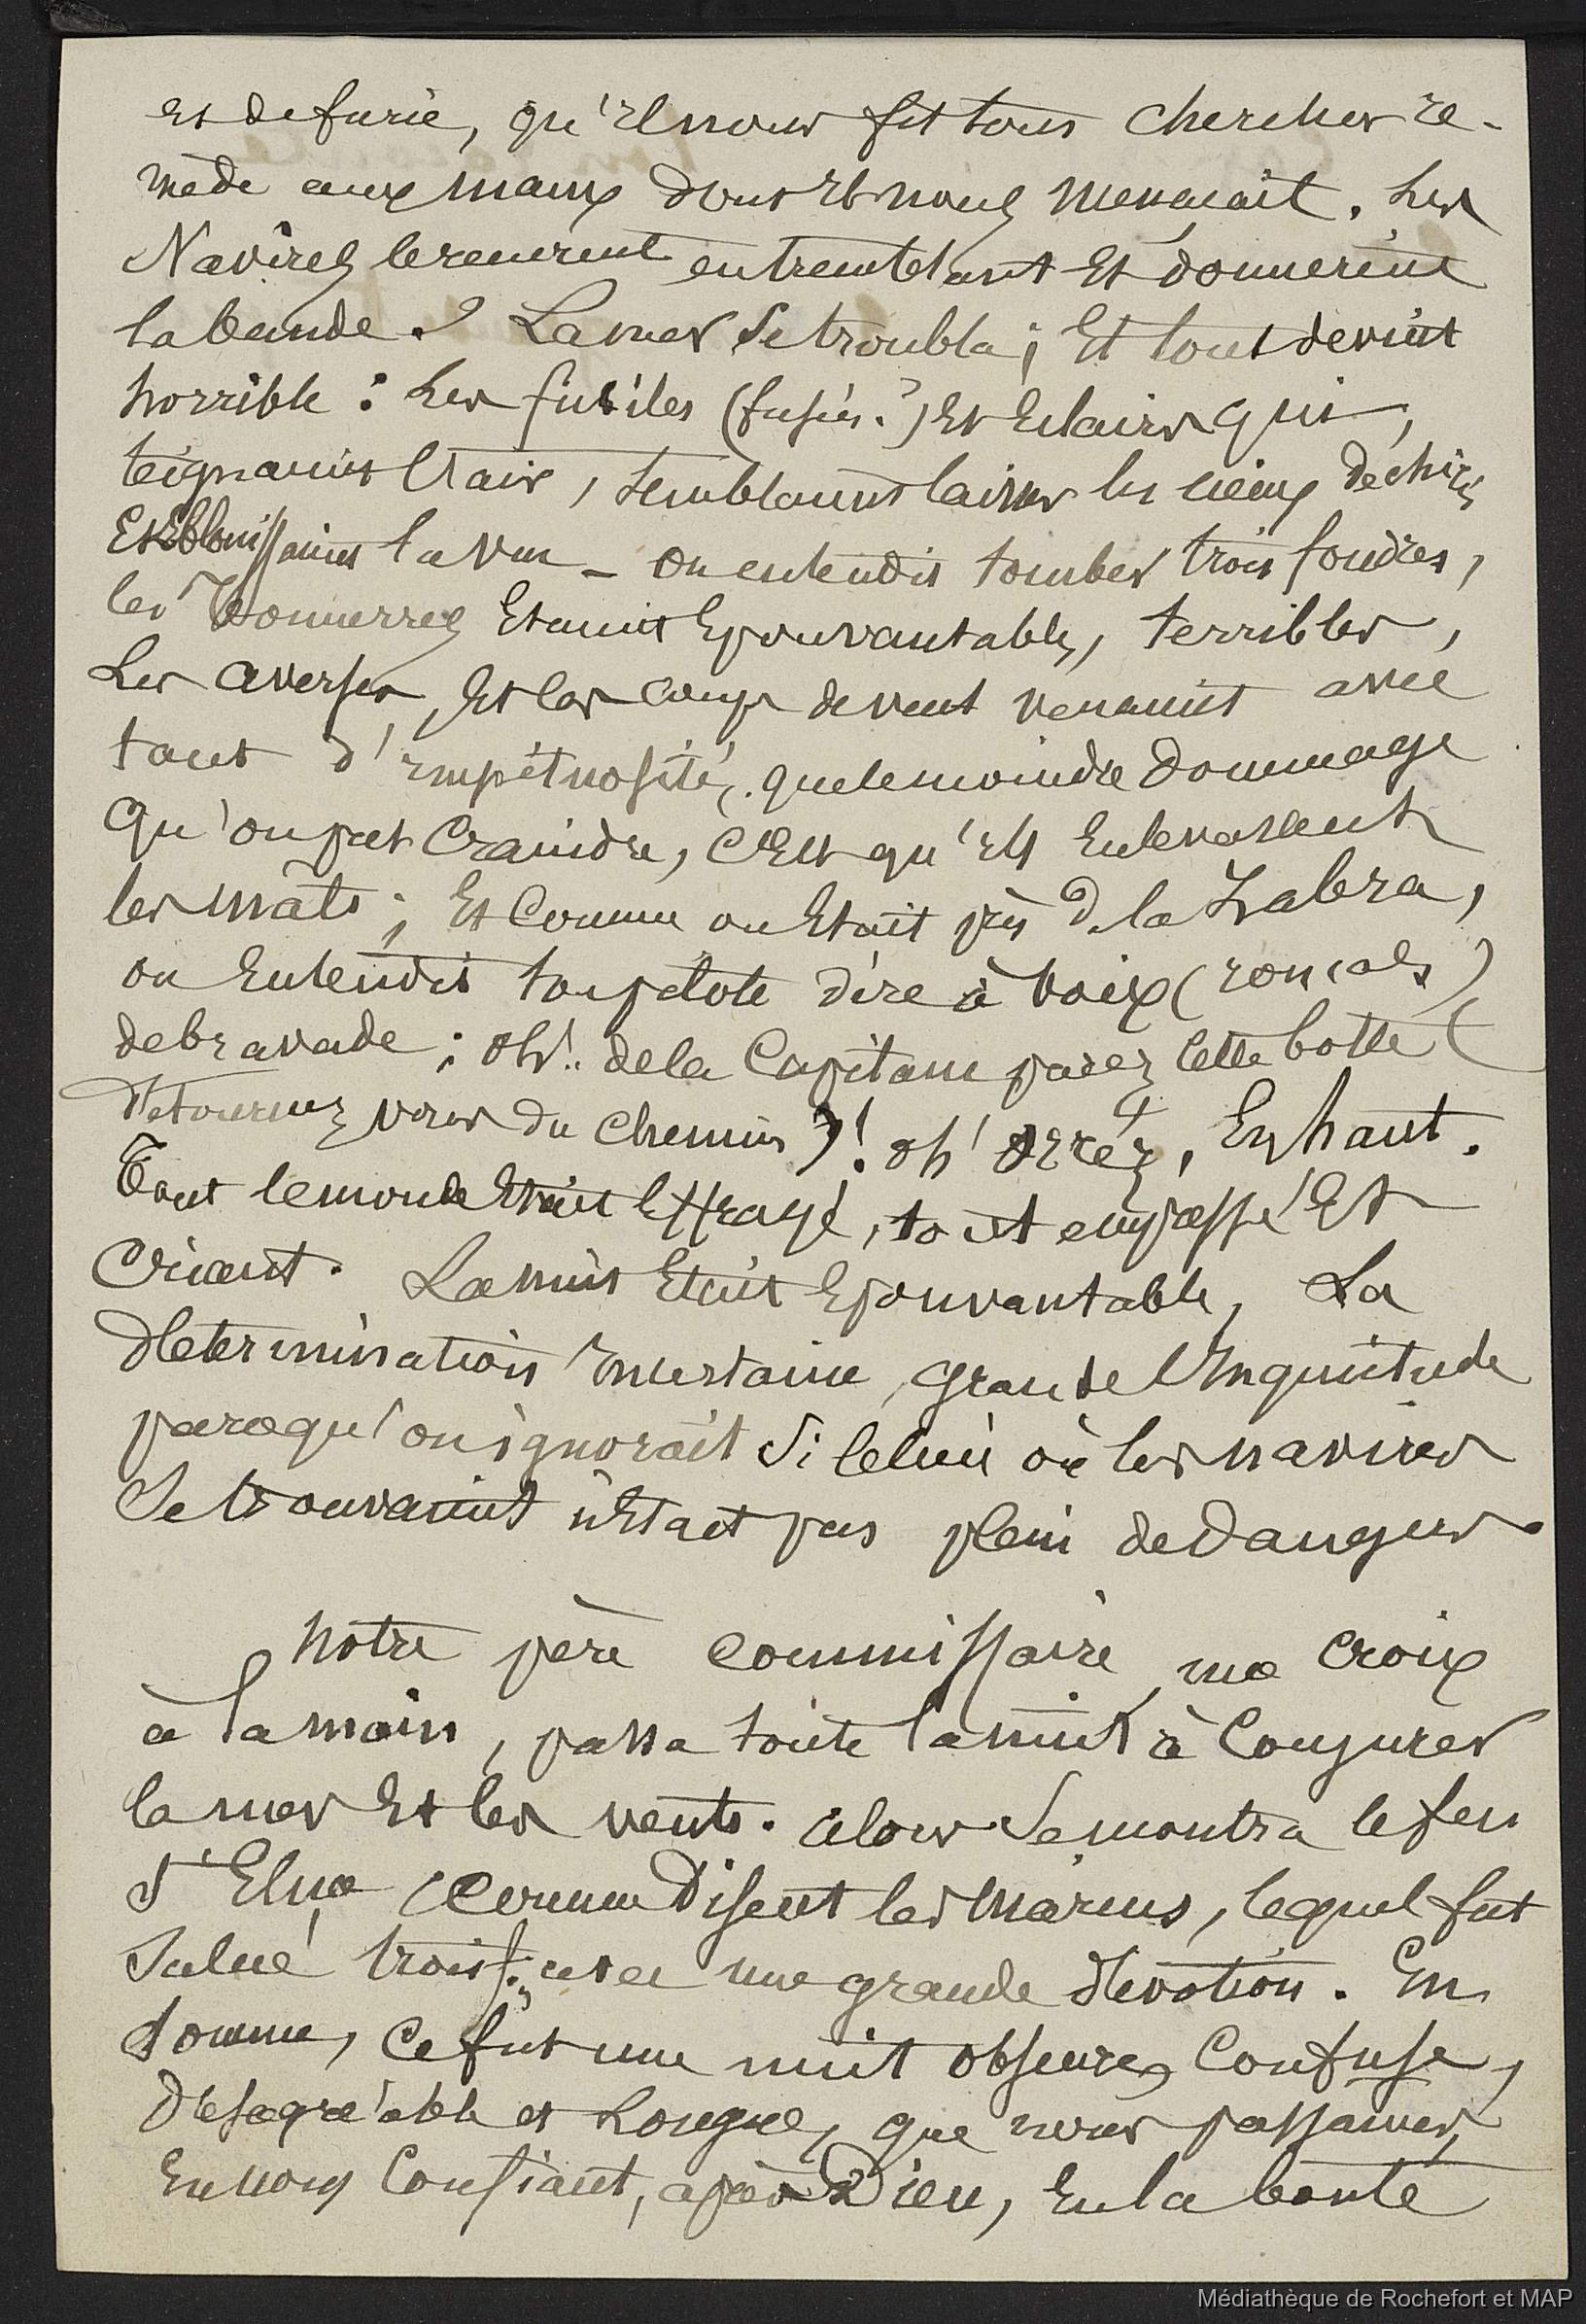 et de furie, qu'il nous fit tous chercher re-
mède aux maux dont il nous menaçait. Les
Navires le reçurent en tremblant et donnerent
la bande. La mer se troubla; Et tout devint
horrible: Les fusiles (fusées?) et Eclairs qui,
teignaient l'air, semblaient laisser les cieux déchirés
Et Eblouissaient la vue - on entendit tomber trois foudres,
les Tonnerres Etaient Epouvantables, terribles,
Les averses, Et les coups de vent venaient avec
tant d'impétuosité, que le moindre dommage
Qu'on put craindre, c'Est qu'ils Enlevassent
les mâts; Et Comme on Etait près de la Zabra,
on Entendit son pilote dire à voix (roncals)
de bravade: oh! de la Capitane parez cette botte (
Détournez vous du chemin)! oh' orréz, En haut.
Tout le monde Etait Effrayé, tout empressé Et
Criant. La nuit Etait Epouvantable, La
détermination incertaine, grande l'Inquiétude
parcequ'on ignorait Si le lieu où les navires
Se trouvaient n'Etait pas plein de Dangers.
Notre père commissaire, une croix
à la main, passa toute la nuit à Conjurer
la mer Et les vents. alors Se montra le feu
St Elme, Comme Disent les Marins, lequel fut
Salué trois f: avec une grande dévotion. En
Somme, Ce fut une nuit obscure, Confuse,
Désagréable et Longue, que nous passâmes,
En nous Confiant, après Dieu, En la bonté
Médiathèque de Rochefort et MAP